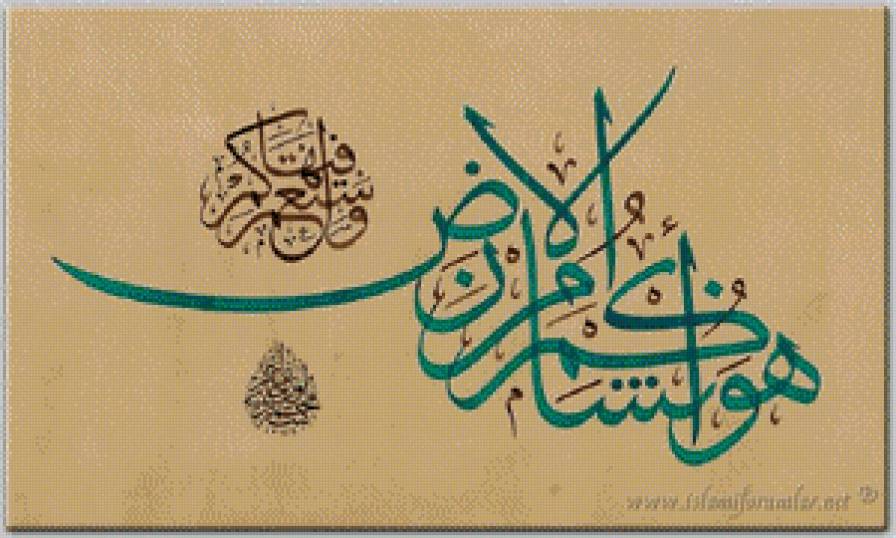 هو أنشأكم من الأرض
واستعمركم فيها
www.islamiforumlar.net